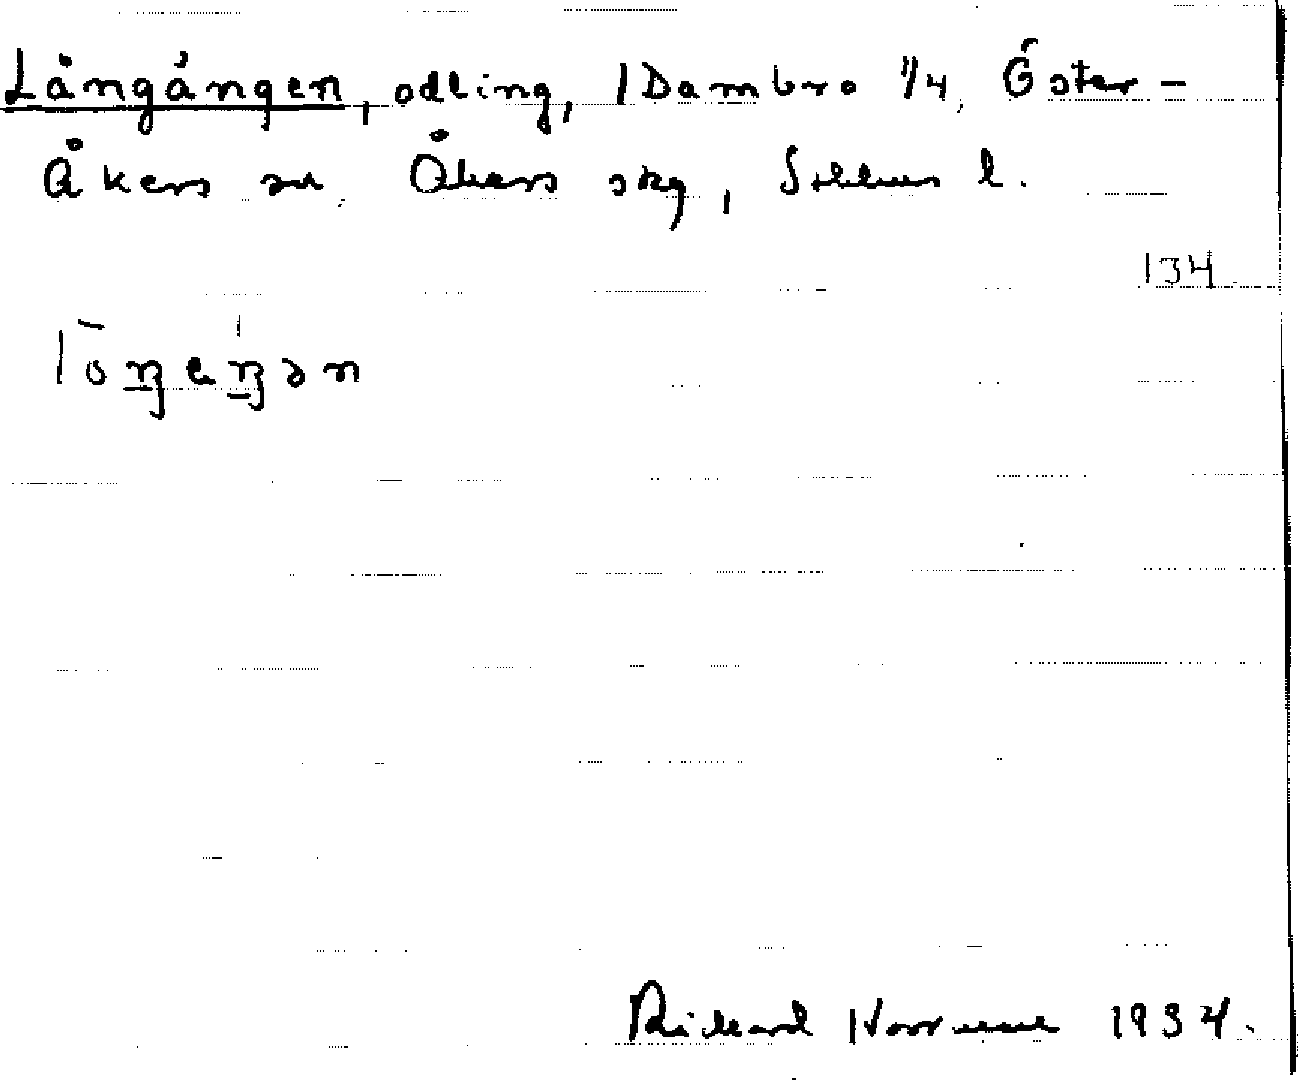 Långången, odling, 1 Dambro 1/4, Öster-
Åkers sn, Åkers skg, Sthlms l.
134
lōŋeŋən
Rickard 1934.